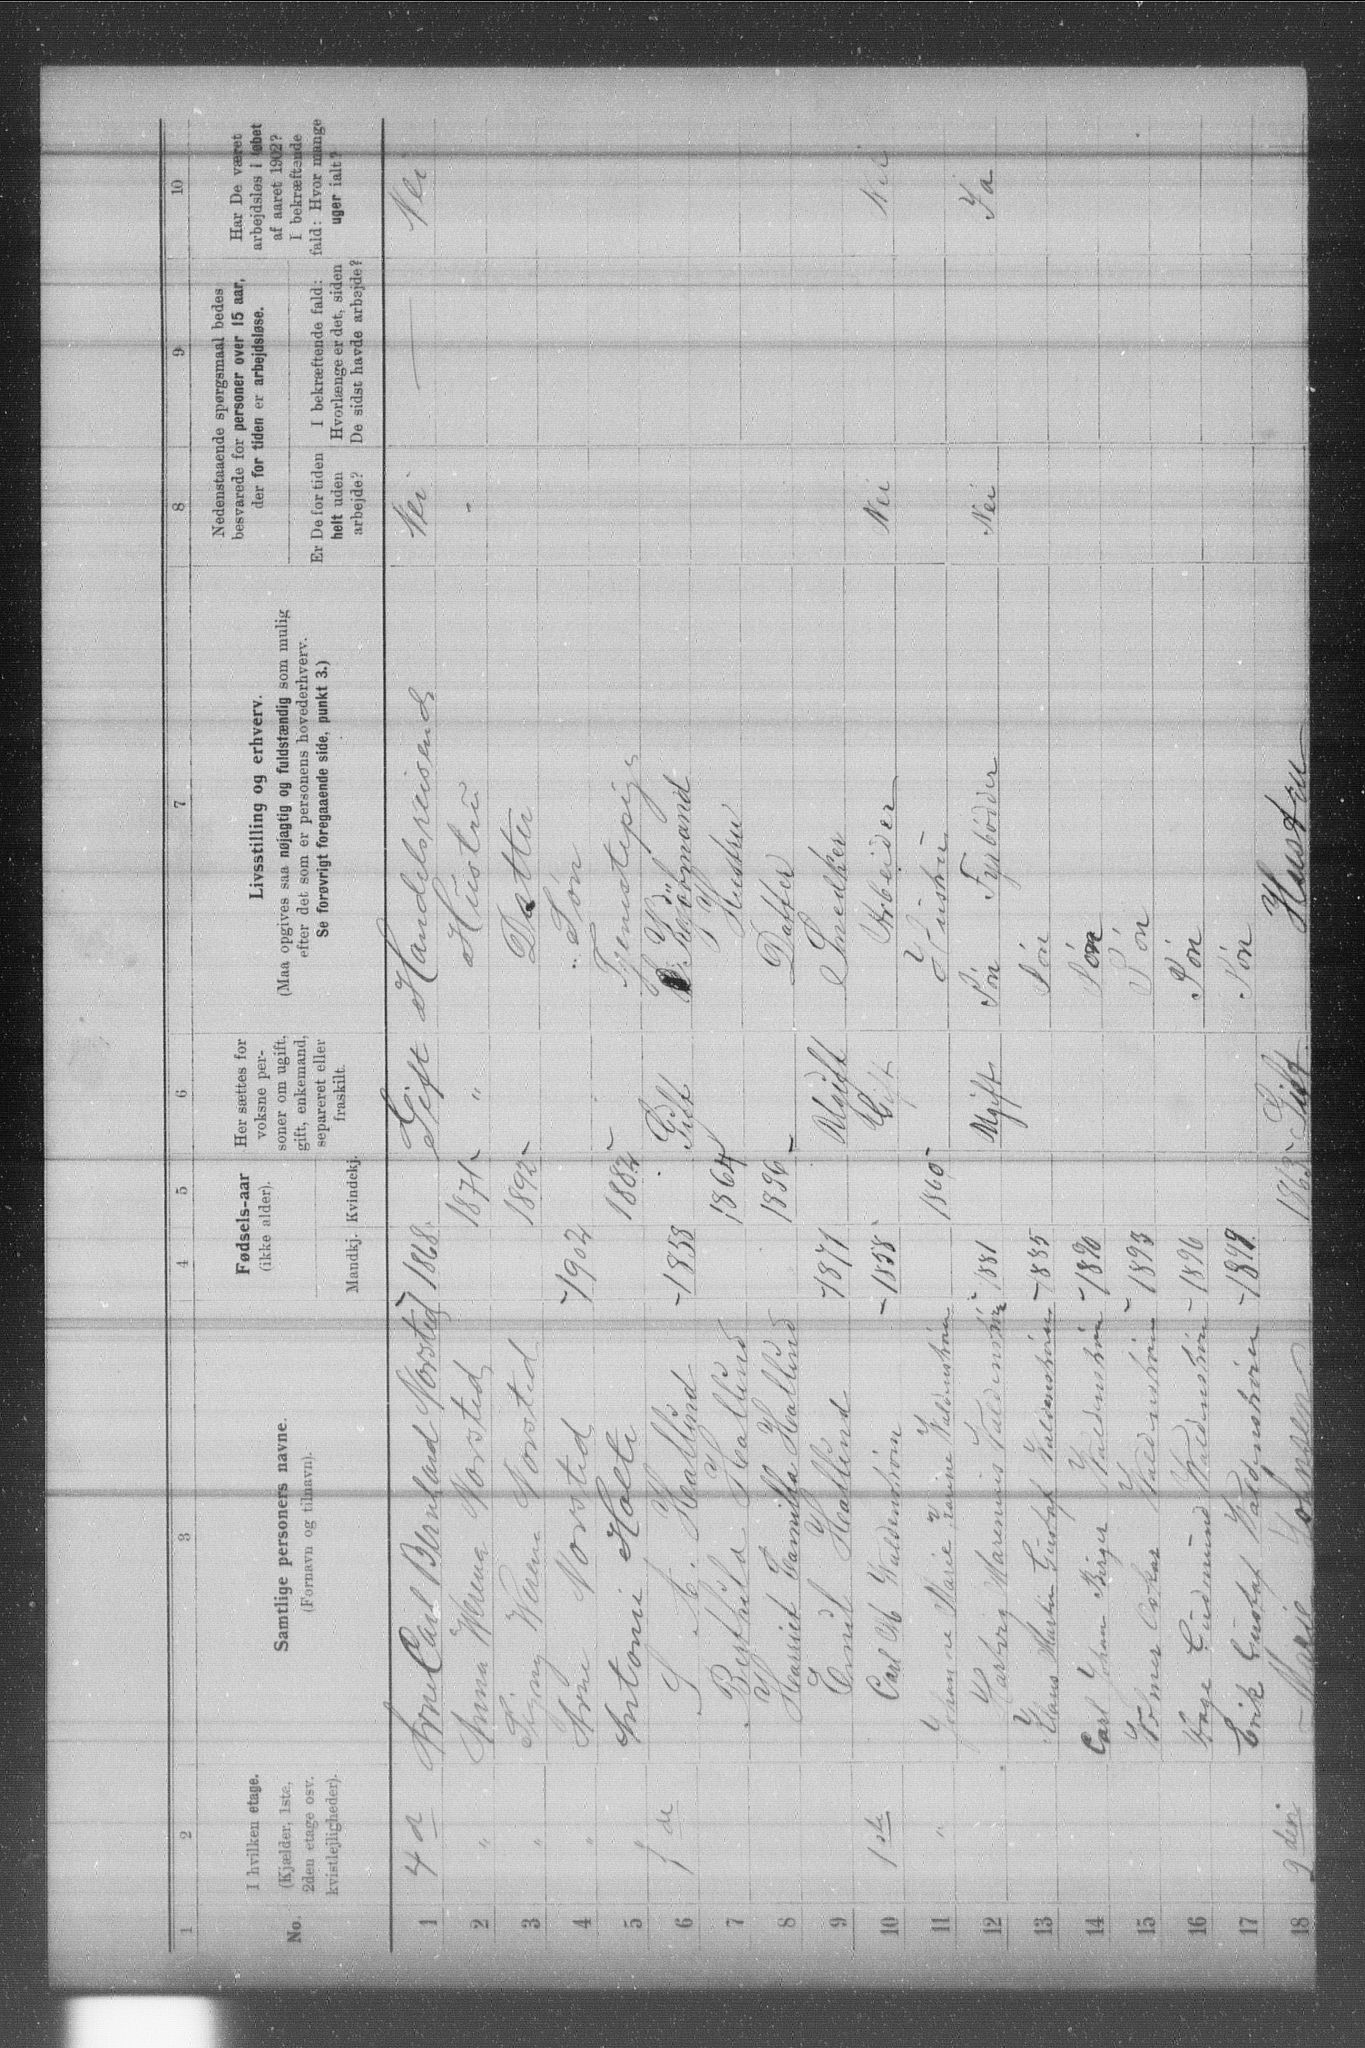 1 2 3 4 5 6 7 8 9 10
No.
I hvilken etage.
(Kjælder, 1ste,
2den etage osv.
kvistlejligheder).
Samtlige personers navne.
(Fornavn og tilnavn).
Fødsels-aar
(ikke alder).
Mandkj. Kvindekj.
Her sættes for
voksne per-
soner om ugift,
gift, enkemand,
separeret eller
fraskilt.
Livsstilling og erhverv.
(Maa opgives saa nøjagtig og fuldstændig som mulig
efter det som er personens hovederhverv.
Se forøvrigt foregaaende side, punkt 3.)
Nedenstaaende spørgsmaal bedes
besvarede for personer over 15 aar,
der for tiden er arbejdsløse.
Er De for tiden
helt uden
arbejde?
I bekræftende fald:
Hvorlænge er det, siden
De sidst havde arbejde?
Har De været
arbejdsløs i løbet
af aaret 1902?
I bekræftende
fald: Hvor mange
uger ialt?
1 4 Arne Carl Bernhard Norsted 1868 Gift Handelsreisende Nei — Nei
2 " Anna Werena Norsted 1871 " Hustru -
3 " Signy Werena Norsted 1892 Datter
4 " Arne Norsted 1902 " Søn
5 Antoni Holt 1882 Tjenestepige
6 Hallind 1853 Gift
7 Berthilda Hallind 1864 Hustru
8 Harriet Camilla Hallind 1896 Datter
9 Emil Hallind 1871 Ugift Snedker
10 1ste Carl M Waldenstrøm 1858 Gift Arbeider Nei Nei
11 " Johanne Marie Waldenstrøm 1860 Hustru
12 Hartvig Marenius Waldenstrøm 1881 Ugift Søn Fyrbøder Nei Ja
13 Hans Martin Gustaf Waldenstrøm 1885 Søn
14 Carl Johan Birger Waldenstrøm 1890 Søn
15 Waldenstrøm 1893 Søn
16 Aage Gudmund Waldenstrøm 1896 Søn
17 Erik Gustaf Waldenstrøm 1899 Søn
18 2den Marie Johnsen 1863 Gift Hustru